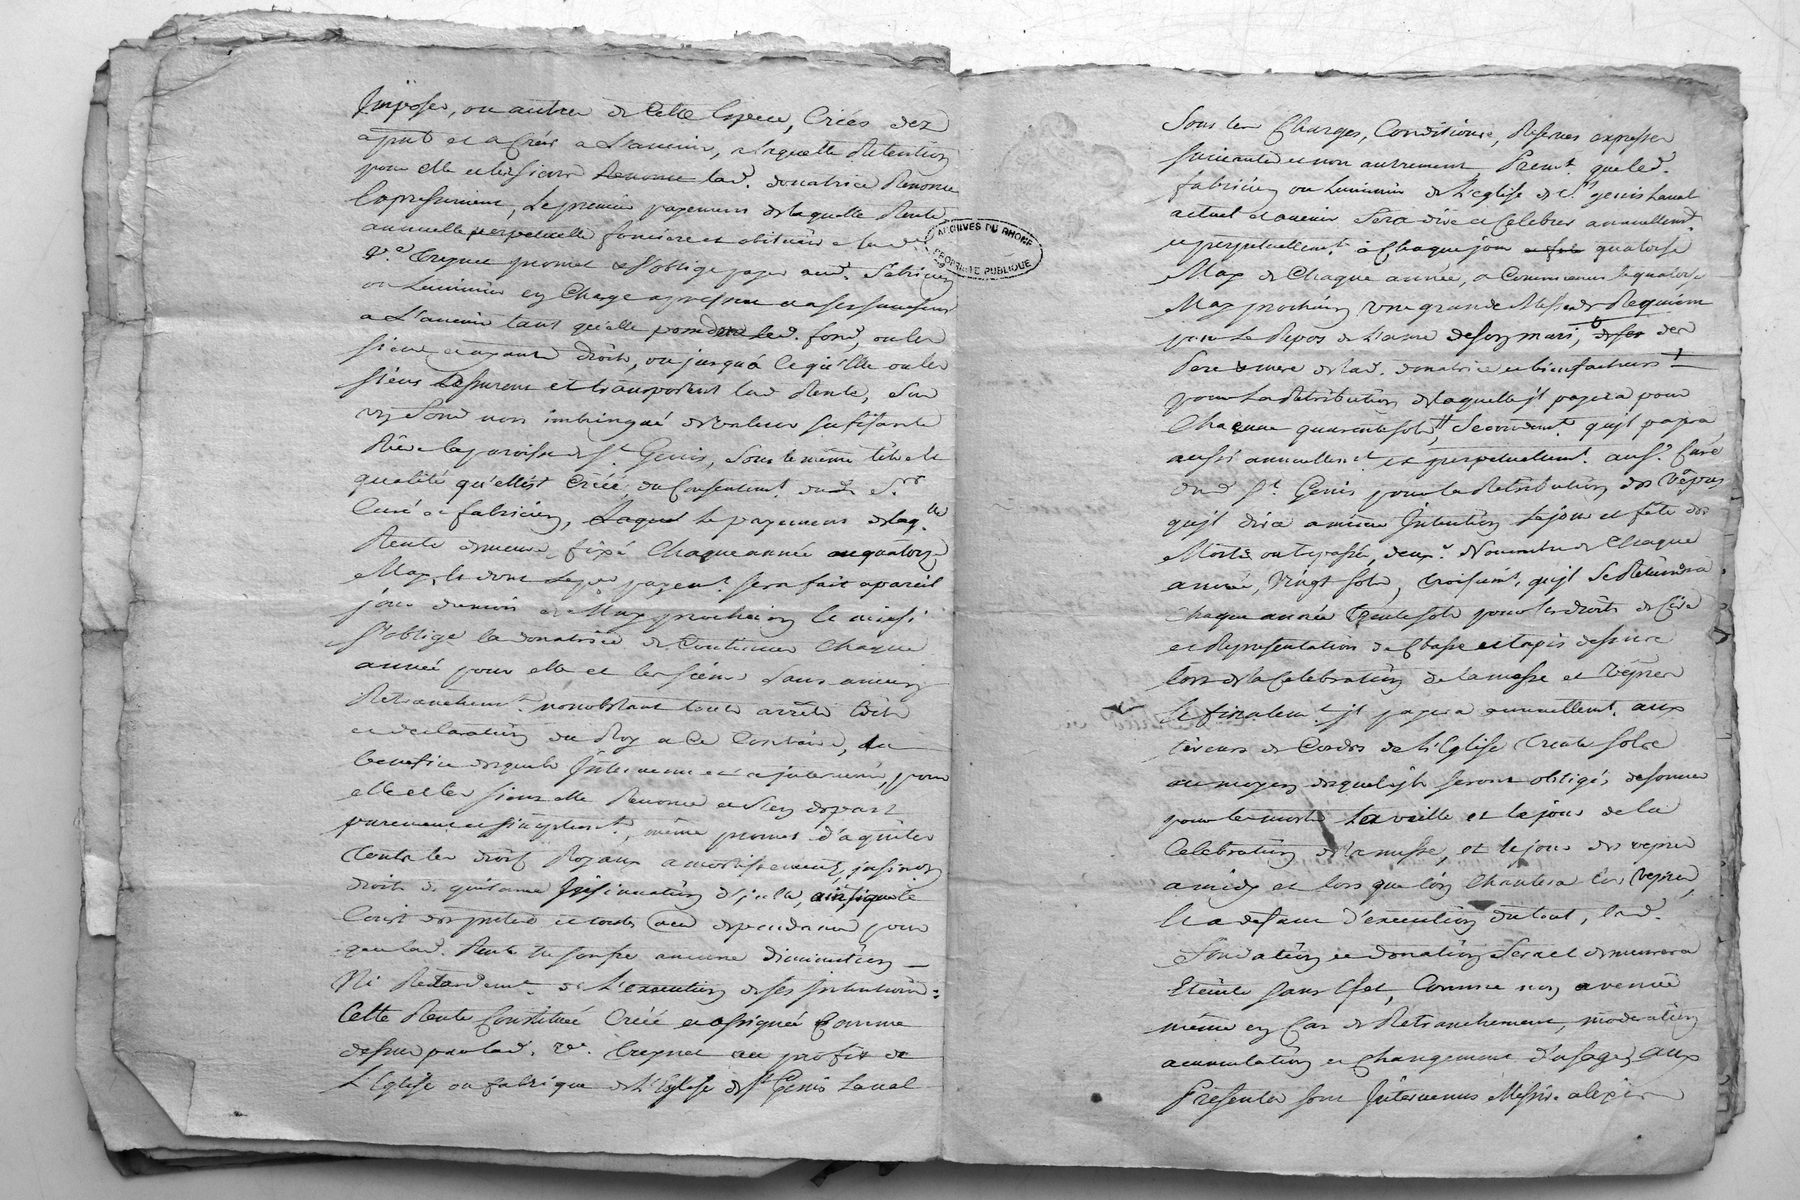 Imposes, ou autres de Cette Espece, Créés dez
apnt et a Créer a L'avenir, a laquelle Retention
pour elle et les siens Renonce lad. donatrice Renonce
Expressement, Le premier payement de laquelle Rente
annuelle perpetuelle fonciere et obituaire lad.
Vᵉ Creynet promet et s'oblige payer aud. fabricien
ou Luminier en Charge a ses successeurs
a L'avenir tant qu'elle possedera led. fond, ou les
siens ayant droit, ou jusqu'à Ce qu'Elle ou les
siens assurent et transportent lad Rente, Sur
un fond non imbringué de valeur suffisante
Rière la paroisse de St Genis, sous le même titre et
qualité qu'elle est Créée, du Consentemt. dud. Sr.
Curé et fabricien, Laquel le payement de laqlle
Rente demeure fixé Chaque année au quatorze
May, dont Le per payemt. sera fait a pareil
jour du mois de May prochain Et ainsi
s'oblige la donatrice de Continuer Chaque
année pour elle et les siens sans aucun
Retranchemt. nonobstant tous arrêts Edits
et declaration du Roy a Ce Contraire, au
benefice desquels Intervenus et a intervenir, pour
elle et les siens elle Renonce et s'en depart
purement et simplemt., même promet d'aquiter
touts les droits Royaux amortissement, jusion
droits de quitance Insinuation d'jcelle, ainsi que le
Coust des putes et touts ses dependances pour
que lad. Rente ne souffre aucune diminution
Ni Retardemt. de L'execution de ses jntentions:
Cette Rente Constituée Créée et assignée Comme
dessus par lad. ve. Creynet au profit de
L'Eglise ou fabrique de L'Eglise de St Genis Laval
Sous les Charges, Conditions, Reserves expresses
suivantes et non autrement, Premt. que led.
fabricien ou Luminier de L'eglise de St. genis Laval
actuel et avenir fera dire et Celebrer annuellemt.
et perpetuellemt. à Chaque jour quatorze
May de Chaque année, a Commencer le quatorze
May prochain Une grande Messe de Requiem
pour Le Repos de L'ame de son mari, de ses des
Pere & mere de lad. donatrice et bienfacteurs
pour La Retribution de laquelle jl payera pour
Chacune quarente sols, Secondemt. qu'jl payera
aussi annuellemt. et perpetuellemt. au Sr. Curé
dud St. Genis pour la Retribution des Vêpres
qu'jl dira a même Intention Le jour et fête des
Morts ou trépassés, deuxe. Novembre de Chaque
année, Vingt sols, troisiemt. qu'jl se Retiendra
Chaque année trente sols pour les droits de Cire
et Representation de Chasse et tapis dessus
lors de la Celebration de la messe et Vêpres
Et finalemt. jl payera annuellemt. aux
tireurs de Cordes de L'Eglise trente sols
au moyen desquels jls seront obligés de sonner
pour les morts La veille et le jour de la
Celebration de la messe, et le jour des vepres
a midy et lors que l'on Chantera les Vepres,
Et a defaut d'execution du tout, lad.
fondation et donation Sera et demeurera
Eteinte sans effet, Comme non avenue
même en Cas de Retranchement, moderation
accumulation et Changement d'usage, aux
Presentes sont Intervenus Messire alexis
ARCHIVES DU RHONE
PROPRIÉTÉ PUBLIQUE